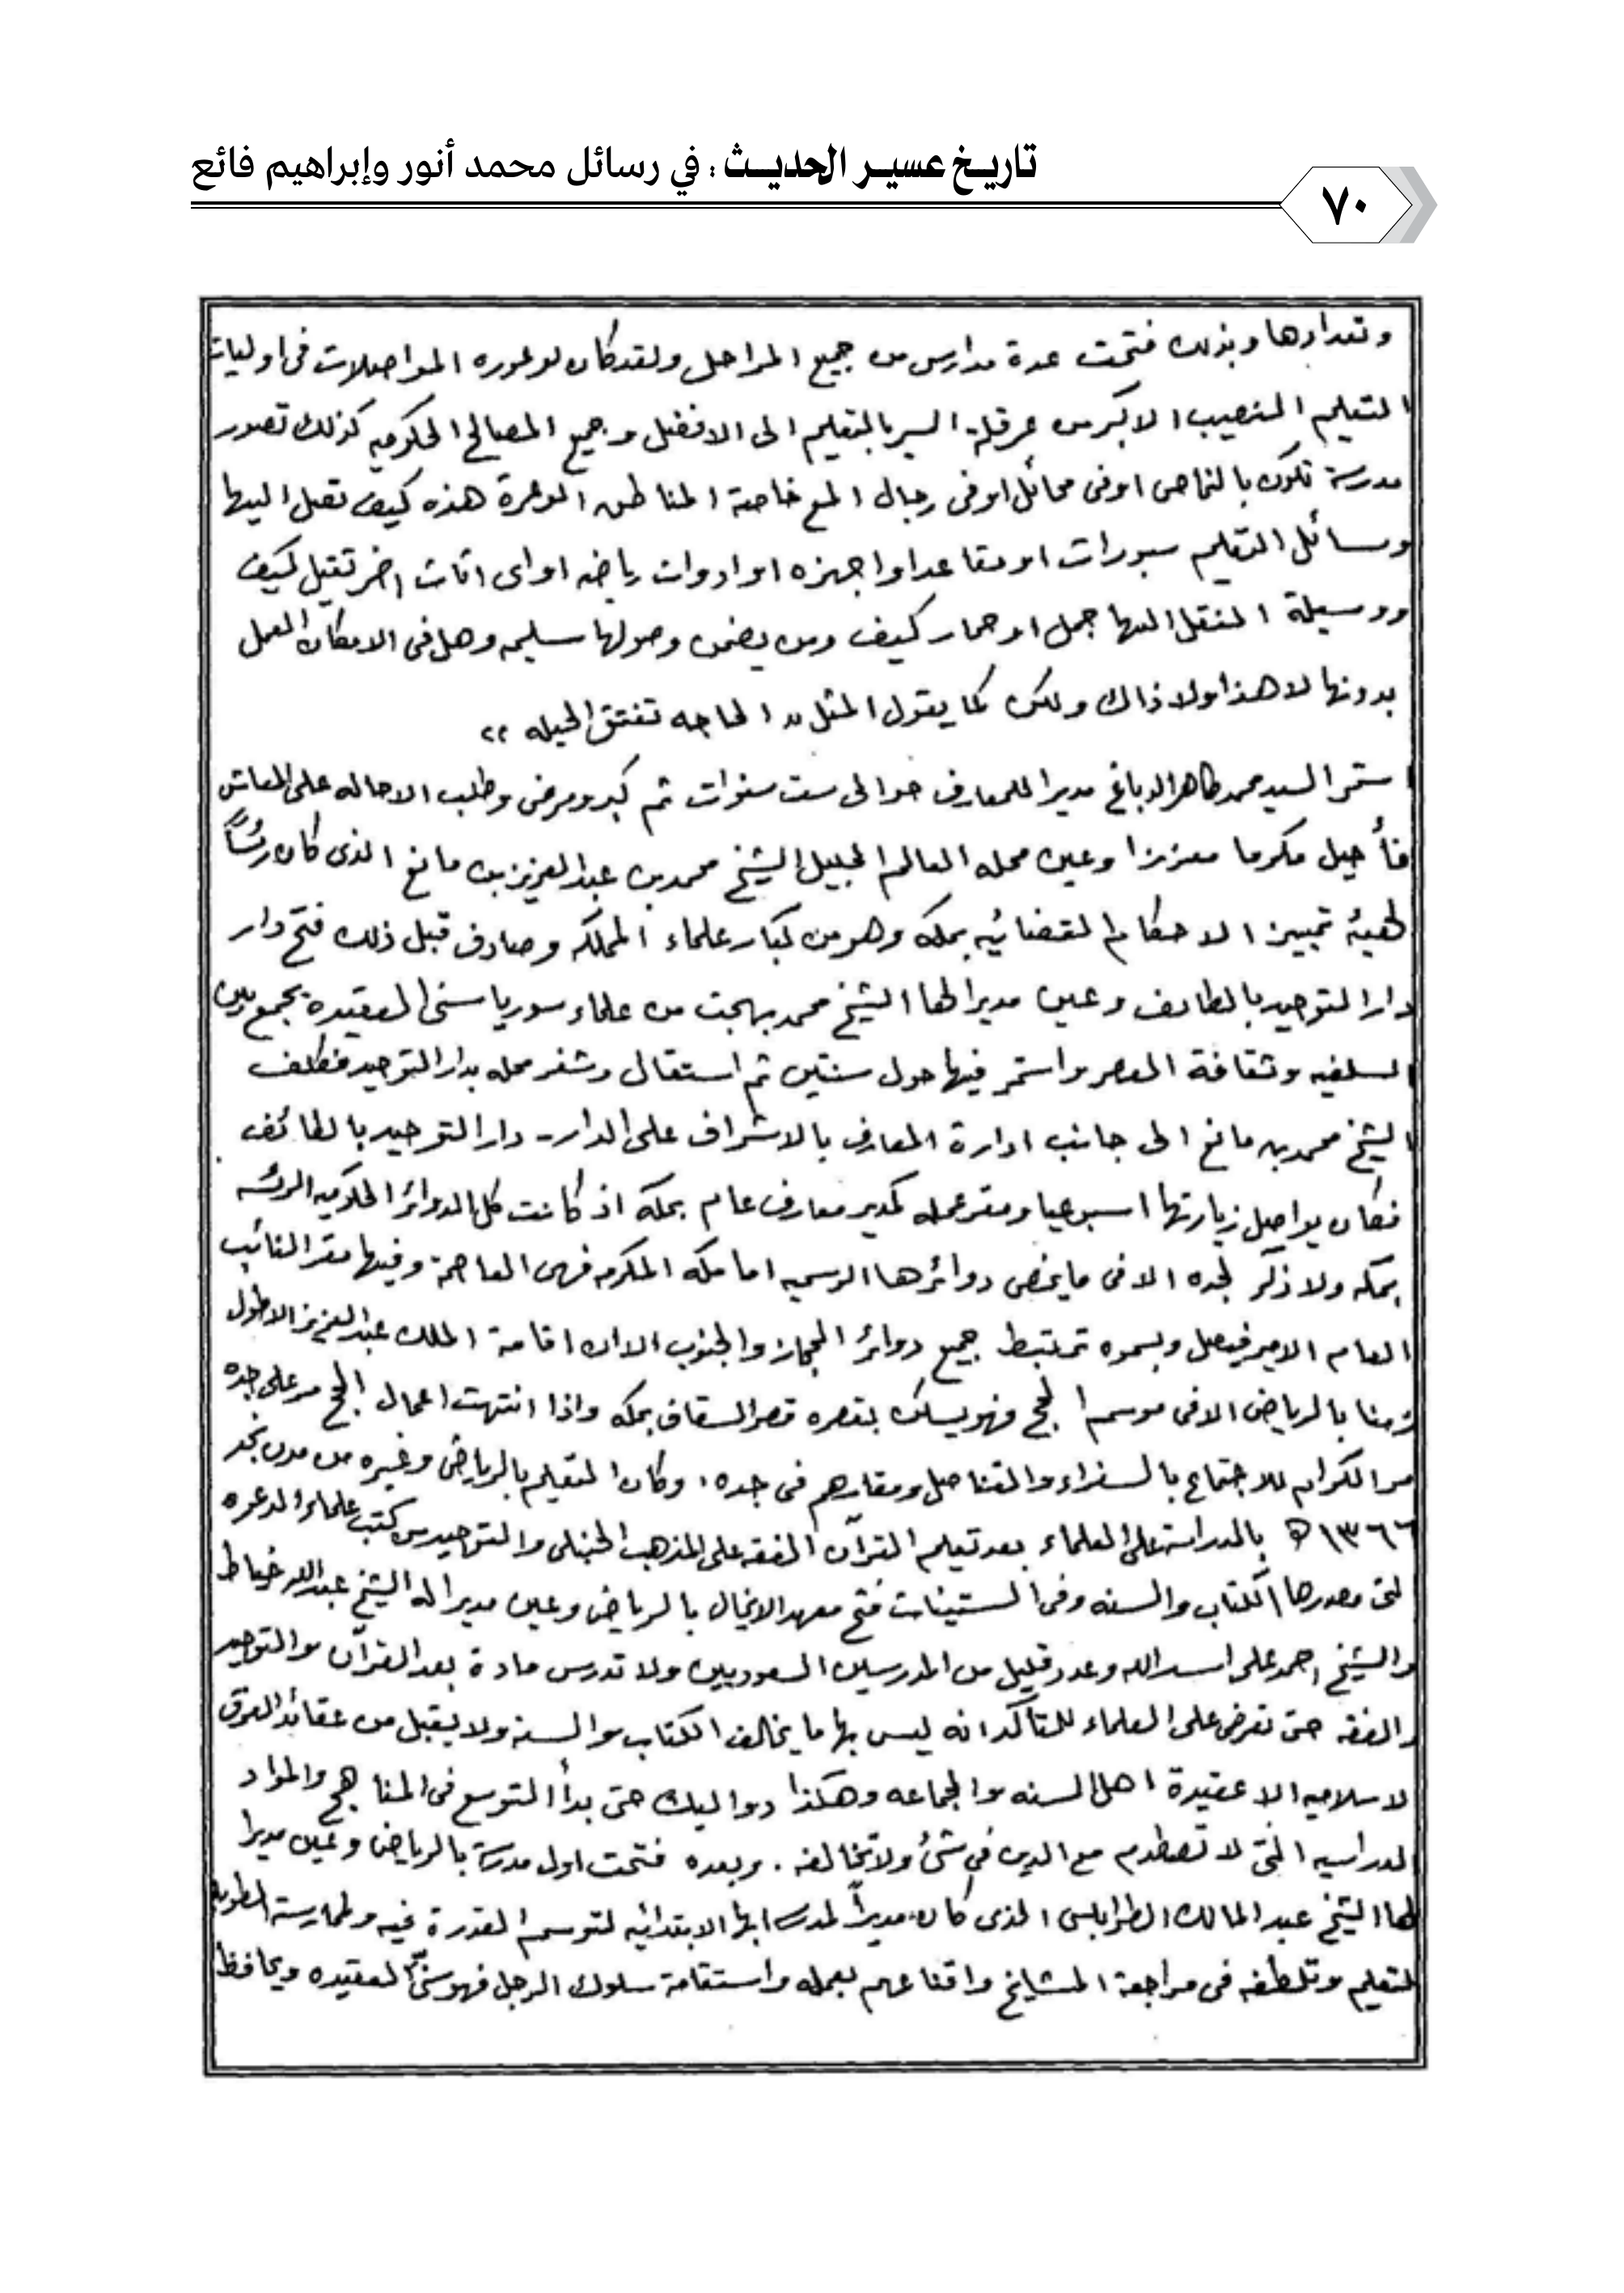 تاريخ عسير الحديث : في رسائل محمد أنور وإبراهيم فائع
٧٠
وتعدادها وبذلك فتحت عدة مدارس من جميع المراحل ولقد كان لوعوره المواصلات فى اوليات
التعليم النصيب الاكبر من عرقلة السير بالتعليم الى الافضل وجميع المصالح الحكوميه كذلك تصور
مدرسة تكون بالنماص او فى محائل او فى رجال المع خاصة المناطق الوعرة هذه كيف تصل اليها
وسائل التعليم سبورات او مقاعد او اجهزه او ادوات رياضه او اى اثاث اخر ثقيل كيف
ووسيلة النقل اليها جمل او حمار كيف ومن يضمن وصولها سليمه وهل فى الامكان العمل
بدونها لا هذا ولا ذاك ولكن كما يقول المثل " الحاجه تفتق الحيله "
استمر السيد محمد طاهر الدباغ مديرا للمعارف حوالى ست سنوات ثم كبر ومرض وطلب الاحاله على المعاش
فأحيل مكرما معززا وعين محله العالم الجليل الشيخ محمد بن عبد العزيز بن مانع الذى كان رئيساً
لهيئة تمييز الاحكام القضائيه بمكه وهو من كبار علماء المملكه وصادف قبل ذلك فتح دار
دار التوحيد بالطائف وعين مديرا لها الشيخ محمد بهجت من علماء سوريا سنى العقيده يجمع بين
السلفيه وثقافة العصر واستمر فيها حول سنتين ثم استقال وشغر محله بدار التوحيد فكلف
الشيخ محمد بن مانع الى جانب ادارة المعارف بالاشراف على الدار - دار التوحيد بالطائف
فكان يواصل زيارتها اسبوعيا ومقر عمله كمدير معارف عام بمكة اذ كانت كل الدوائر الحكوميه الرئسه
بمكه ولا ذكر لجده الا فى مايخص دوائرها الرسميه اما مكه المكرمه فهى العاصمة وفيها مقر النائب
العام الامير فيصل وبسموه ترتبط جميع دوائر الحجاز والجنوب الا ان اقامة الملك عبد العزيز الاطول
زمنا بالرياض الا فى موسم الحج فهو يسكن بقصره قصر السقاف بمكه واذا انتهت اعمال الحج مر على جده
مر الكرام للاجتماع بالسفراء والقناصل ومقارهم فى جده ، وكان التعليم بالرياض وغيره من مدن نجد
١٣٦٦ هـ بالدراسة على العلماء بعد تعليم القرآن الفقه على المذهب الحنبلى والتوحيد من كتب علماء الدعوه
التى مصدرها الكتاب والسنه وفى الستينات فتح معهد الانجال بالرياض وعين مديرا له الشيخ عبد الله خياط
والشيخ احمد على اسد الله وعدد قليل من المدرسين السعوديين ولا تدرس مادة بعد القرآن والتوحيد
والفقه حتى تعرض على العلماء للتأكد انه ليس بها ما يخالف الكتاب والسنة ولا يقبل من عقائد الفرق
الاسلاميه الا عقيدة اهل السنه والجماعه وهكذا دواليك حتى بدأ التوسع فى المناهج والمواد
الدراسيه التى لا تصطدم مع الدين في شئ ولا تخالفه . وبعده فتحت اول مدرسة بالرياض وعين مديرا
لها الشيخ عبد المالك الطرابلسى الذى كان مديراً لمدرسة ابها الابتدائيه لتوسم القدرة فيه ولممارسته الطويله
للتعليم وتلطفه فى مراجعة المشايخ واقناعهم بعمله واستقامة سلوك الرجل فهو سنىّ العقيده ويحافظ